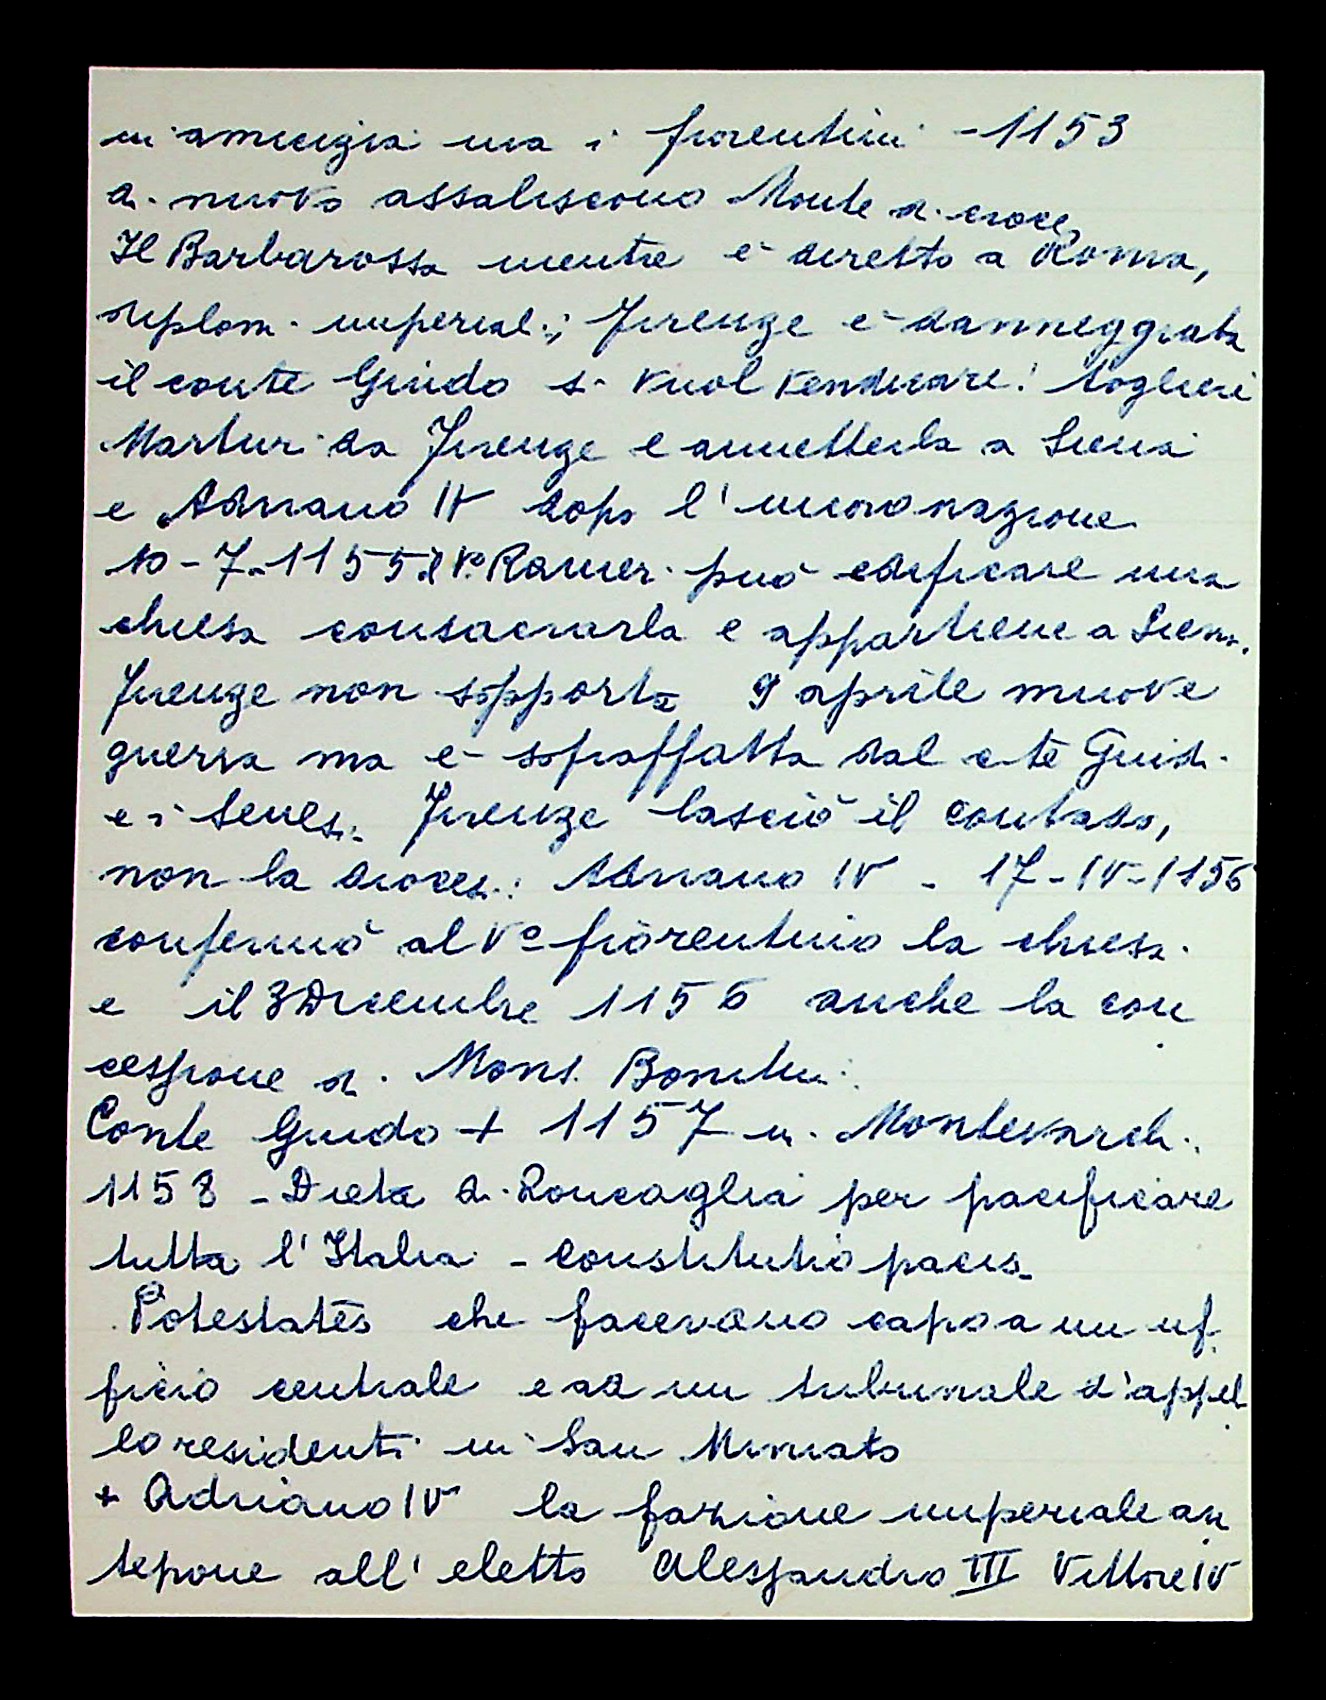 in amicizia ma i fiorentini - 1153
di nuovo assaliscono Monte di croce,
Il Barbarossa mentre è diretto a Roma,
diplom. imperiali; Firenze è danneggiata
il conte Guido si vuol vendicare: togliere
Marturi da Firenze e annetterla a Siena
e Adriano IV dopo l'incoronazione
10-7-1155 il Vº Ranieri può edificare una
chiesa consacrarla e appartiene a Siena.
Firenze non sopporta 9 aprile muove
guerra ma è sopraffatta dal c-te Guidi
e i Senesi. Firenze lasciò il contado,
non la diocesi: Adriano IV - 17-IV-1156
confermò al Vº fiorentino la chiesa
e il 3 Dicembre 1156 anche la con
cessione di Mons.
Conte Guido + 1157 in Montevarchi.
1158 - Dieta di Roncaglia per pacificare
tutta l'Italia - Constitutio pacis.
Potestates che facevano capo a un uf
ficio centrale e ad un tribunale d'appel
lo residenti in San Miniato
+ Adriano IV la fazione imperiale an
tepone all'eletto Alessandro III Vittore IV